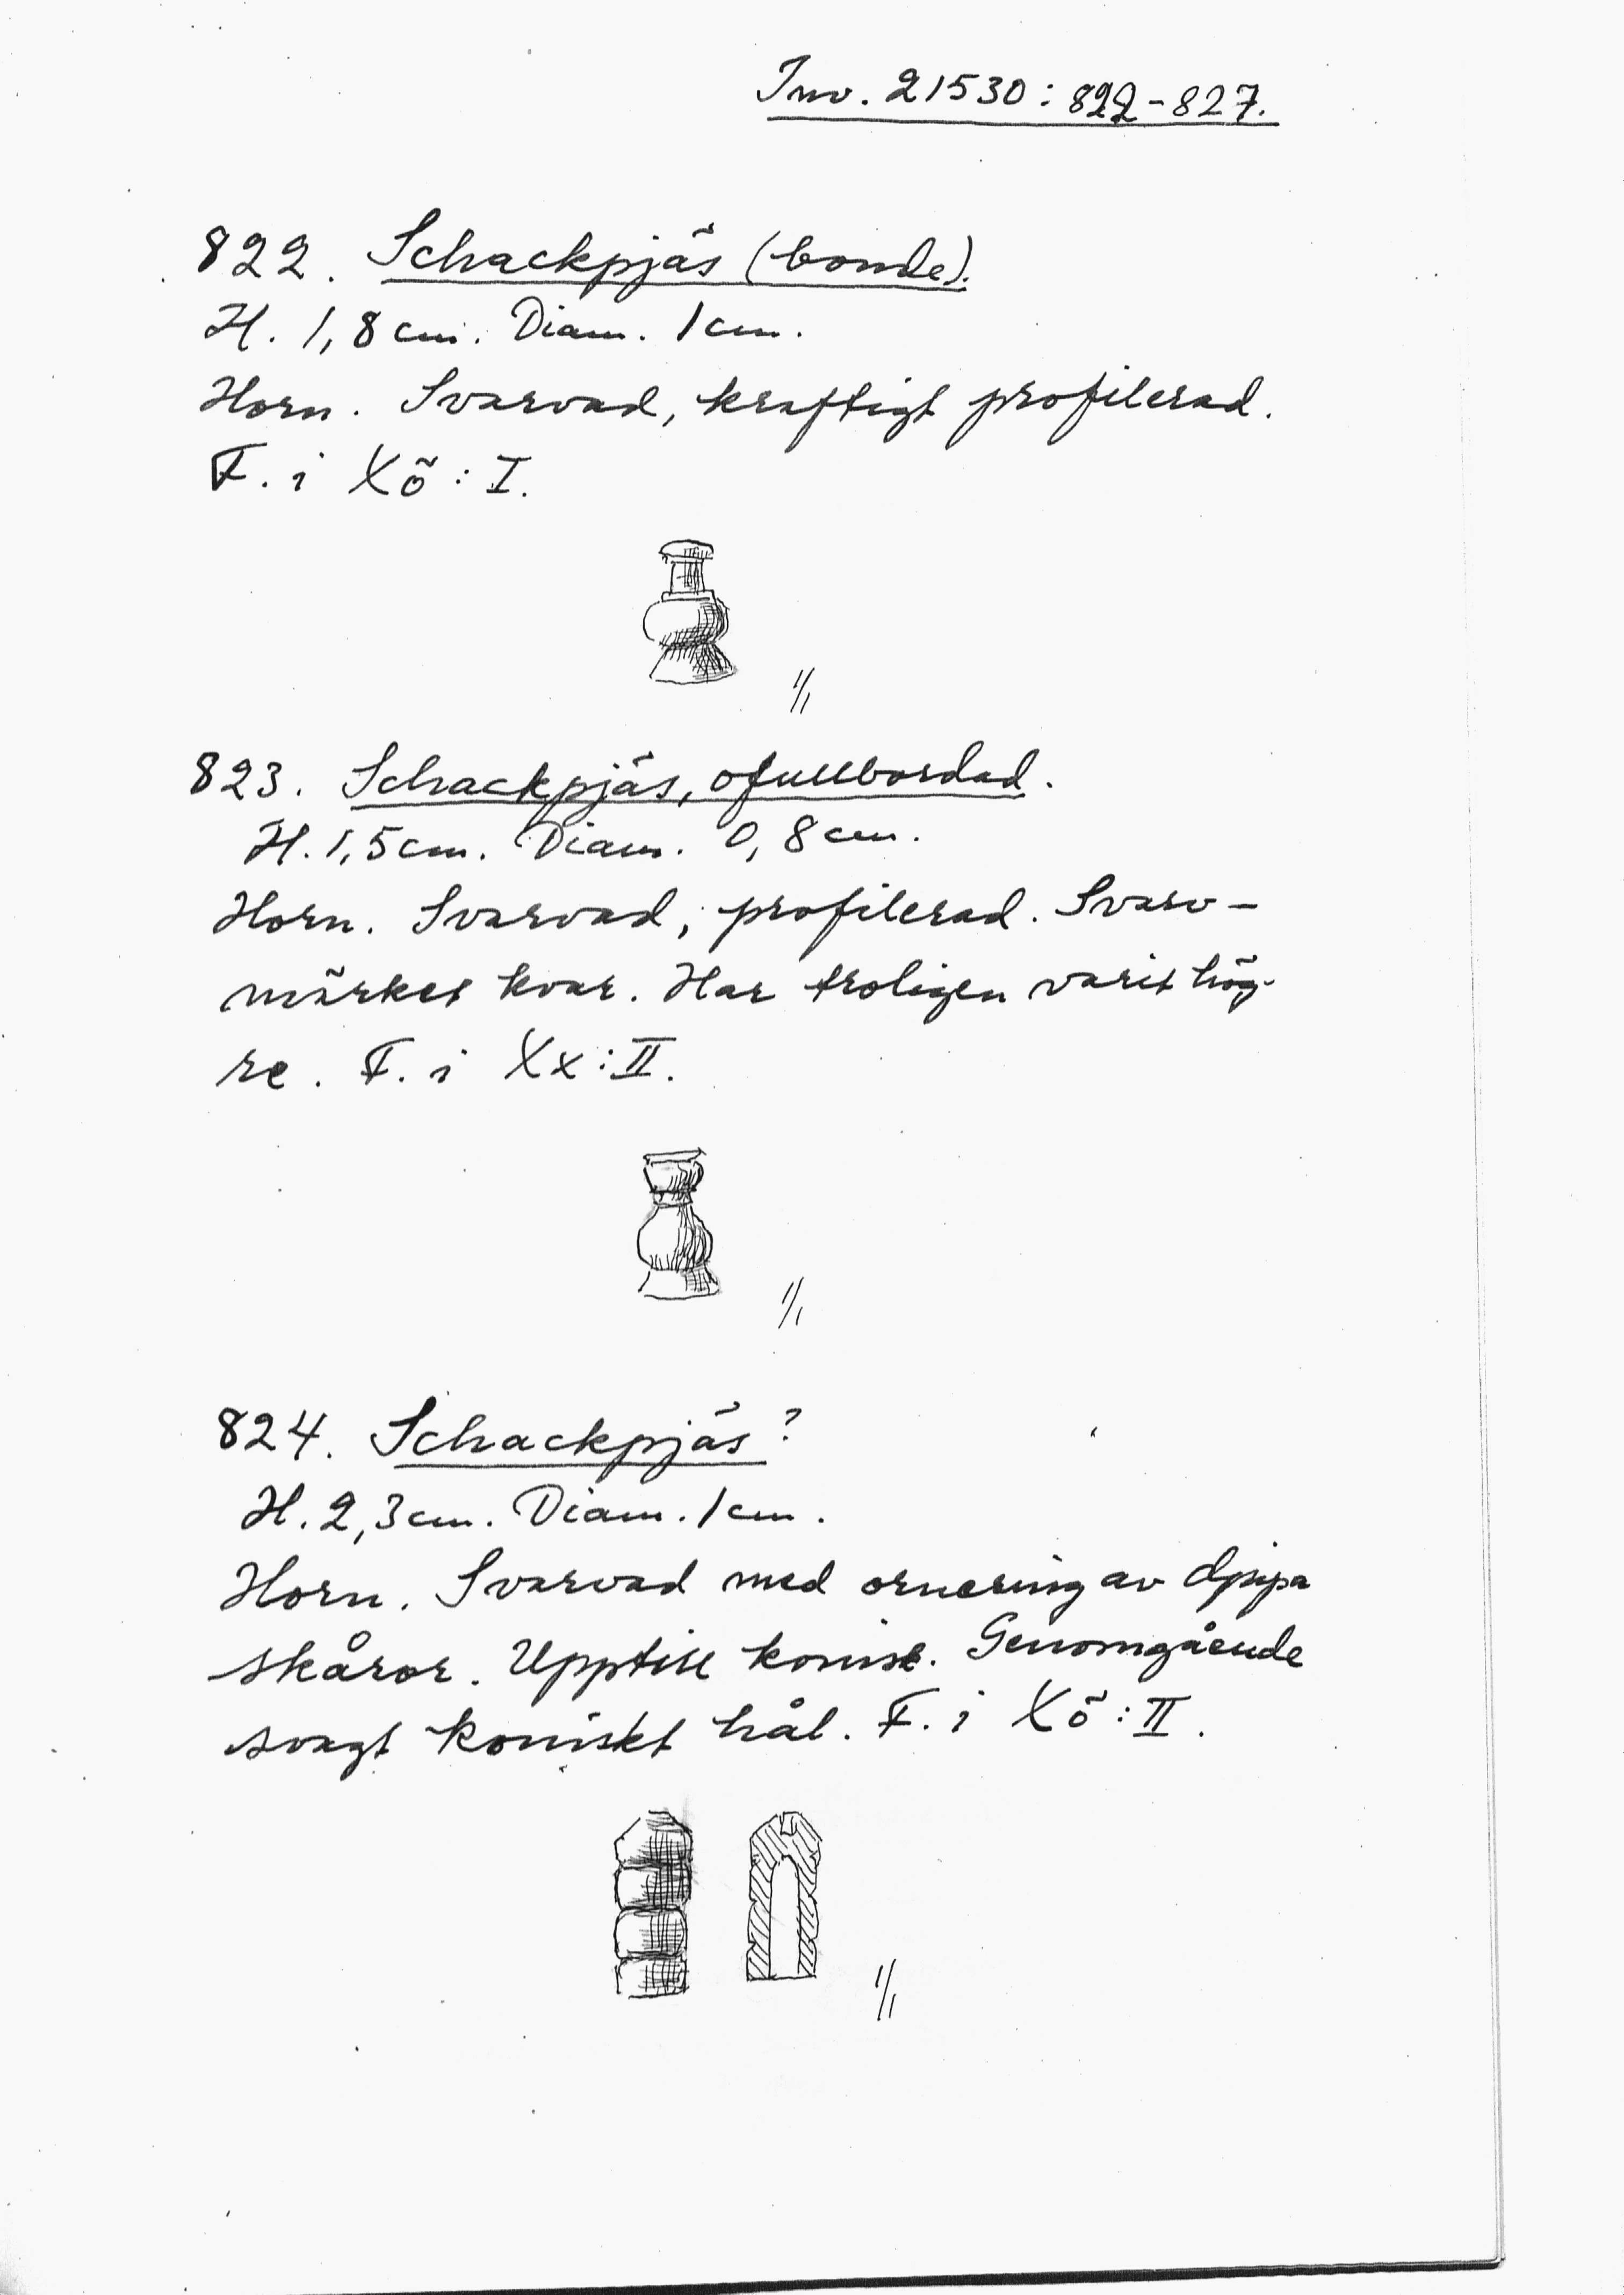 Inv. 21530:822-827.
822. Schackpjäs (bonde).
H. 1,8 cm. Diam. 1 cm.
Horn. Svarvad, kraftigt profilerad.
F. i Xö: I.
1/1
823. Schackpjäs, ofullbordad.
H. 1,5 cm. Diam. 0,8 cm.
Horn. Svarvad, profilerad. Svarv-
märket kvar. Har troligen varit hög-
re. F. i Xx: II.
1/1
824. Schackpjäs?
H. 2,3 cm. Diam. 1 cm.
Horn. Svarvad med ornering av djupa
skåror. Upptill konisk. Genomgående
svagt koniskt hål. F. i Xö: II.
1/1